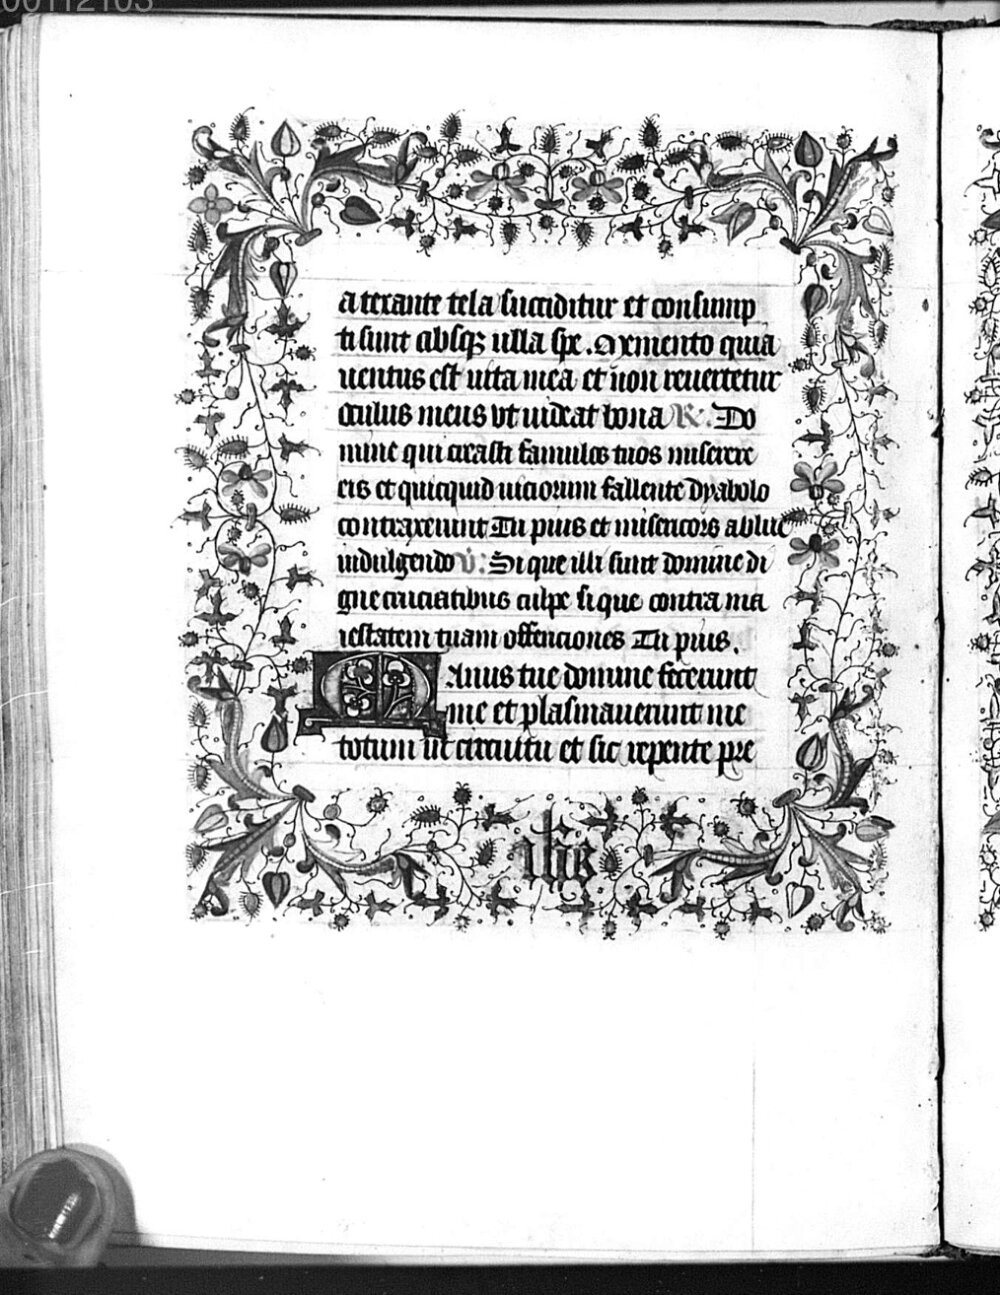 00112103
a texante tela succiditur et consump
ti sunt absqꝫ ulla spe. Memento quia
uentus est uita mea et non reuertetur
oculus meus vt uideat bona R. Do
mine qui creasti famulos tuos miserere
eis et quicquid uiciorum fallente dyabolo
contraxerunt Tu pius et misericors ablue
indulgendo v. Si que illi sunt domine di
gne cruciatibus culpe si que contra ma
iestatem tuam offenciones Tu pius.
Manus tue domine fecerunt
me et plasmauerunt me
totum in circuitu et sic repente pre
ihs